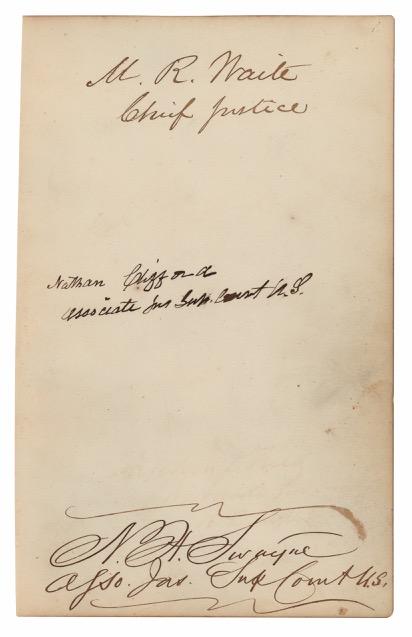 M. R. Waite
Chief Justice
Nathan Clifford
Associate Jus Sup. Court U.S.
N. H. Swayne
Asso. Jus. Sup Court U.S.